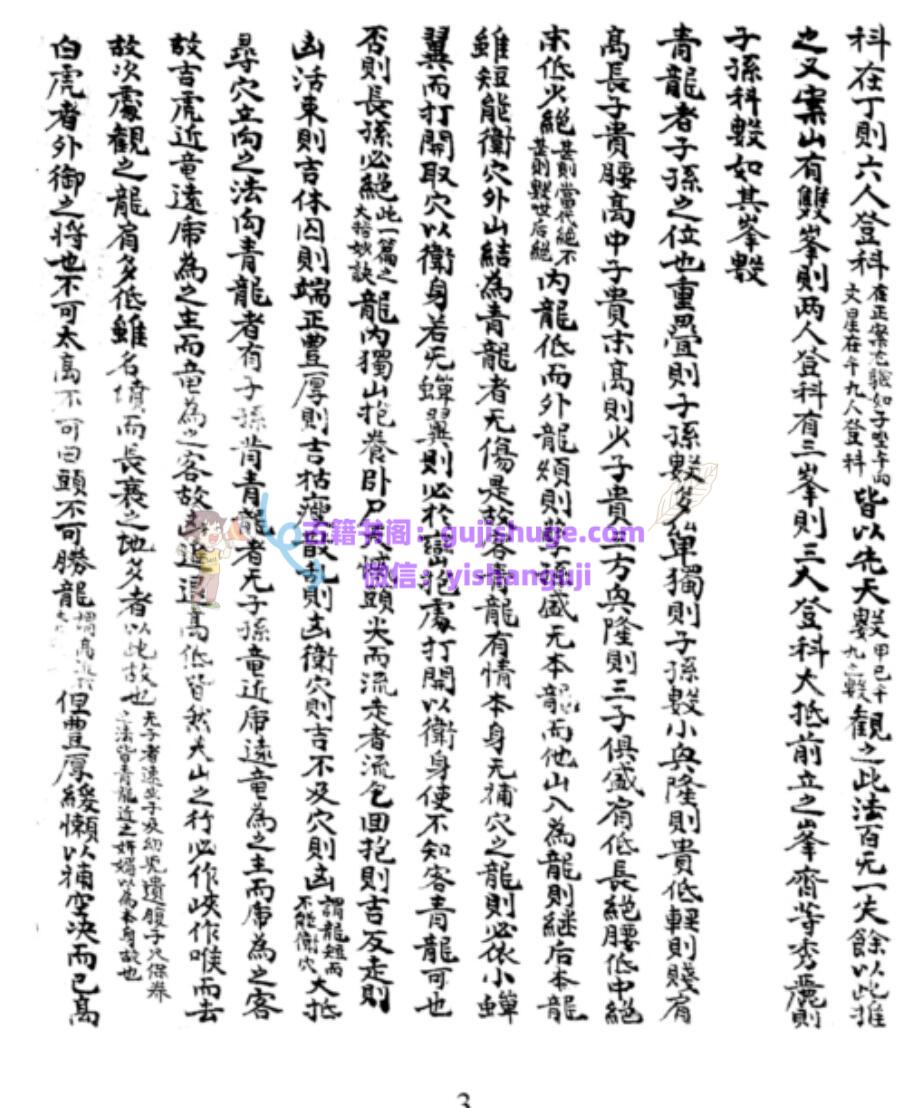 科在丁則六人登科在正案尤驗如子坐午向文星在午九人登科皆以先天數甲己子午九之數觀之此法百无一失餘以此推
之又案山有雙峯則两人登科有三峯則三人登科大抵前立之峯齊等秀麗則
子孫科數如其峯數
青龍者子孫之位也重疊則子孫數多單獨則子孫數小與隆則貴低輕則賤肩
高長子貴腰高中子貴末高則少子貴三方與隆則三子俱盛肩低長絕腰低中絕
末低少絕甚則當代絕不甚則數世后絕內龍低而外龍須則子孫盛无本龍而他山入為龍則継后本龍
雖短能衛穴外山結為青龍者无傷是故客青龍有情本身无補穴之龍則必依小蟬
翼而打開取穴以衛身若无蟬翼則必於巒抱處打開以衛身使不知客青龍可也
否則長孫必絕此一篇之大撘妙訣龍內獨山抱養卧尸大慨頭尖而流走者流乞回抱則吉反走則
凶活東則吉休囚則端正豊厚則吉枯瘦散乱則凶衛穴則吉不及穴則凶謂龍短而不能衛穴大抵
尋穴立向之法向青龍者有子孫背青龍者无子孫竜近虎遠竜為之主而虎為之客
故吉虎近竜遠虎為之主而竜為之客故凶近遠高低皆然大山之行必作峽作喉而去
故次處觀之龍肩多低雖名墳而長衰之地多者以此故也无子者速生子及幼兒遺腹子穴保養之法皆青龍近之妍媚以為本身故也
白虎者外御之将也不可太高不可曰頭不可勝龍謂高但豊厚緩懶以補空决而已高
古籍书阁：gujishuge.com
微信：yishanguji
3